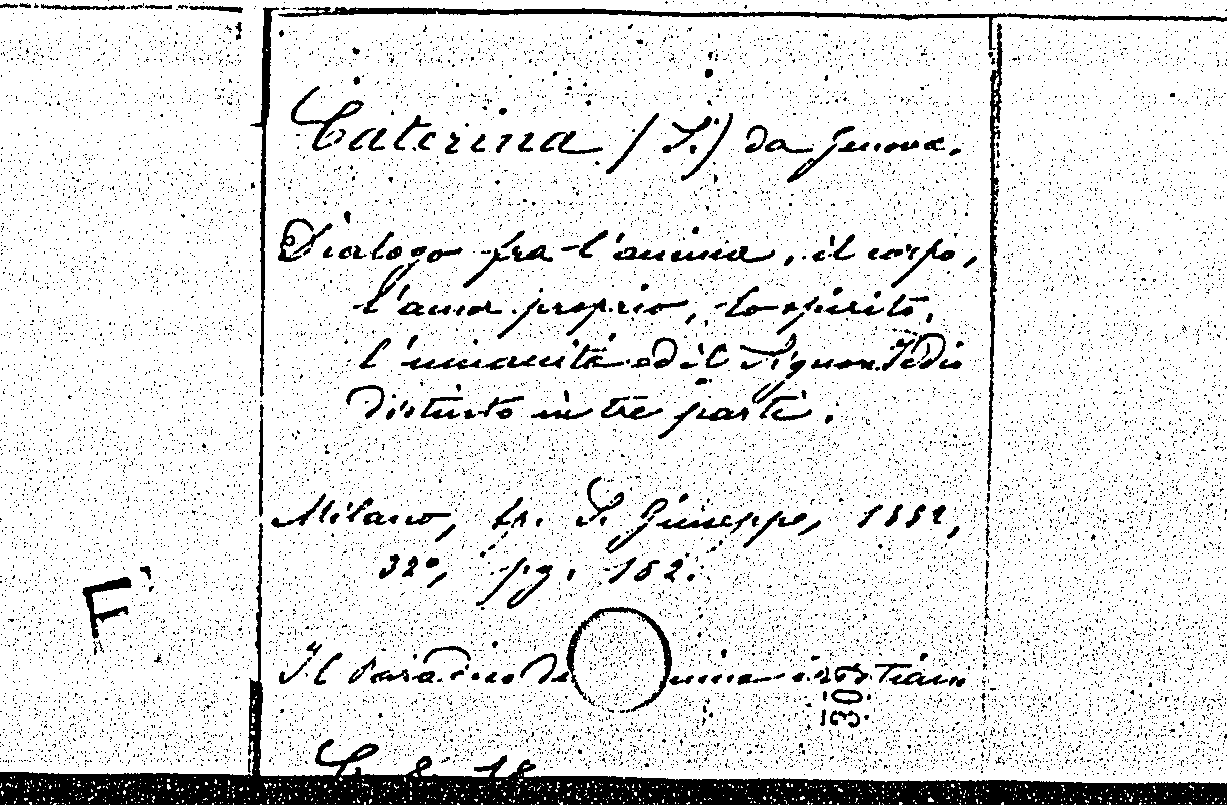 Caterina (S.) da Genova.
Dialogo fra l'anima, il corpo,
l'amor proprio, lo spirito,
l'umanità ed il Signor Iddio
distinto in tre parti.
Milano, tp. S. Giuseppe, 1882,
32º, pg. 152.
Il Paradiso de
F
30